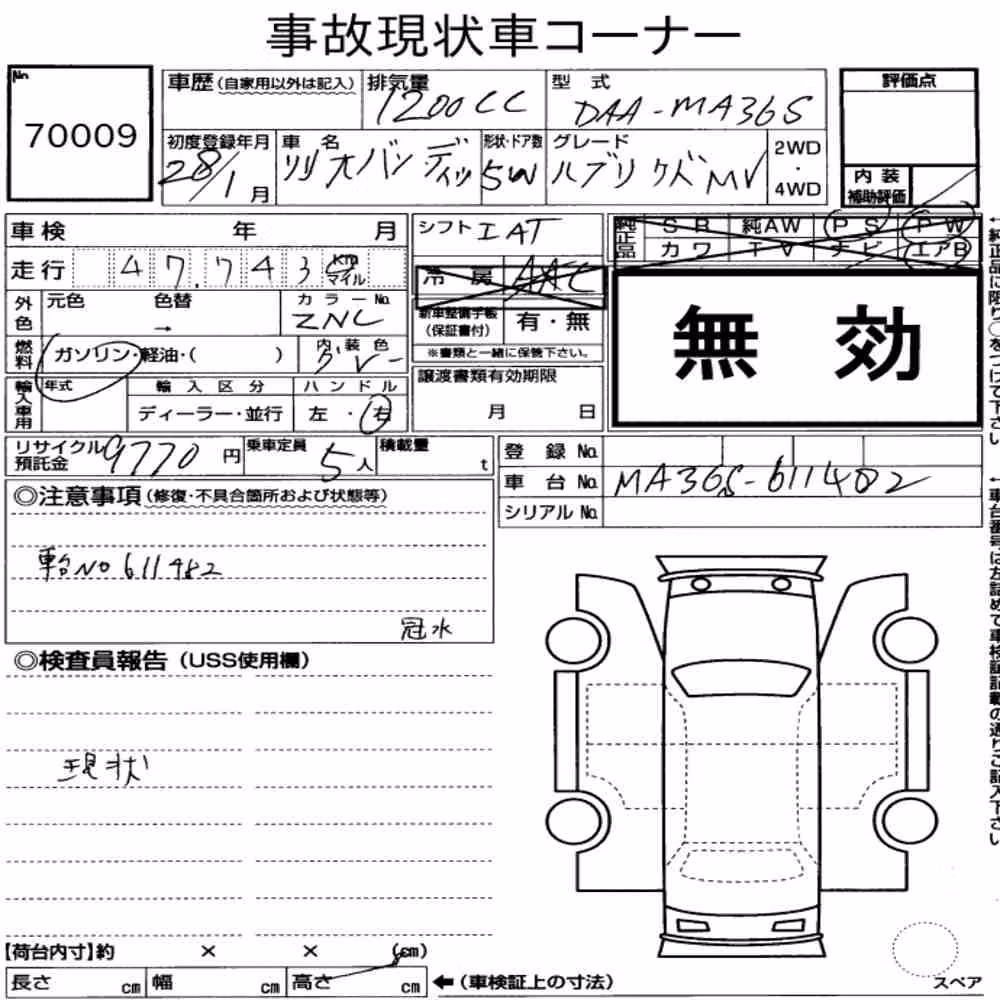 事故現状車コーナー
No.
70009
車歴(自家用以外は記入)
排気量
1200CC
型式
DAA-MA36S
評価点
初度登録年月
28/1月
車名
ソリオバンディッ
形状・ドア数
5W
グレード
ハイブリッドMV
2WD
・
4WD
内装
補助評価
車検 年 月
シフト IAT
純正品
SR 純AW PS PW
カワ TV ナビ エアB
走行 47,743 km マイル
冷房 AAC
外色
元色 色替
→
カラーNo.
ZNC
新車整備手帳
(保証書付)
有・無
※書類と一緒に保管下さい。
無効
燃料
ガソリン・軽油・( )
内装色
グレー
輸入車用
年式
輸入区分
ディーラー・並行
ハンドル
左・右
譲渡書類有効期限
月 日
リサイクル預託金
9770円
乗車定員
5人
積載量
t
登録No.
車台No. MA36S-611482
シリアルNo.
◎注意事項(修復・不具合箇所および状態等)
車台NO 611482
冠水
◎検査員報告(USS使用欄)
現状
【荷台内寸】約 × × (cm)
長さ cm 幅 cm 高さ cm
←(車検証上の寸法)
スペア
←純正品に限り○をつけて下さい
←車台番号は左詰めで車検証記載の通りご記入下さい